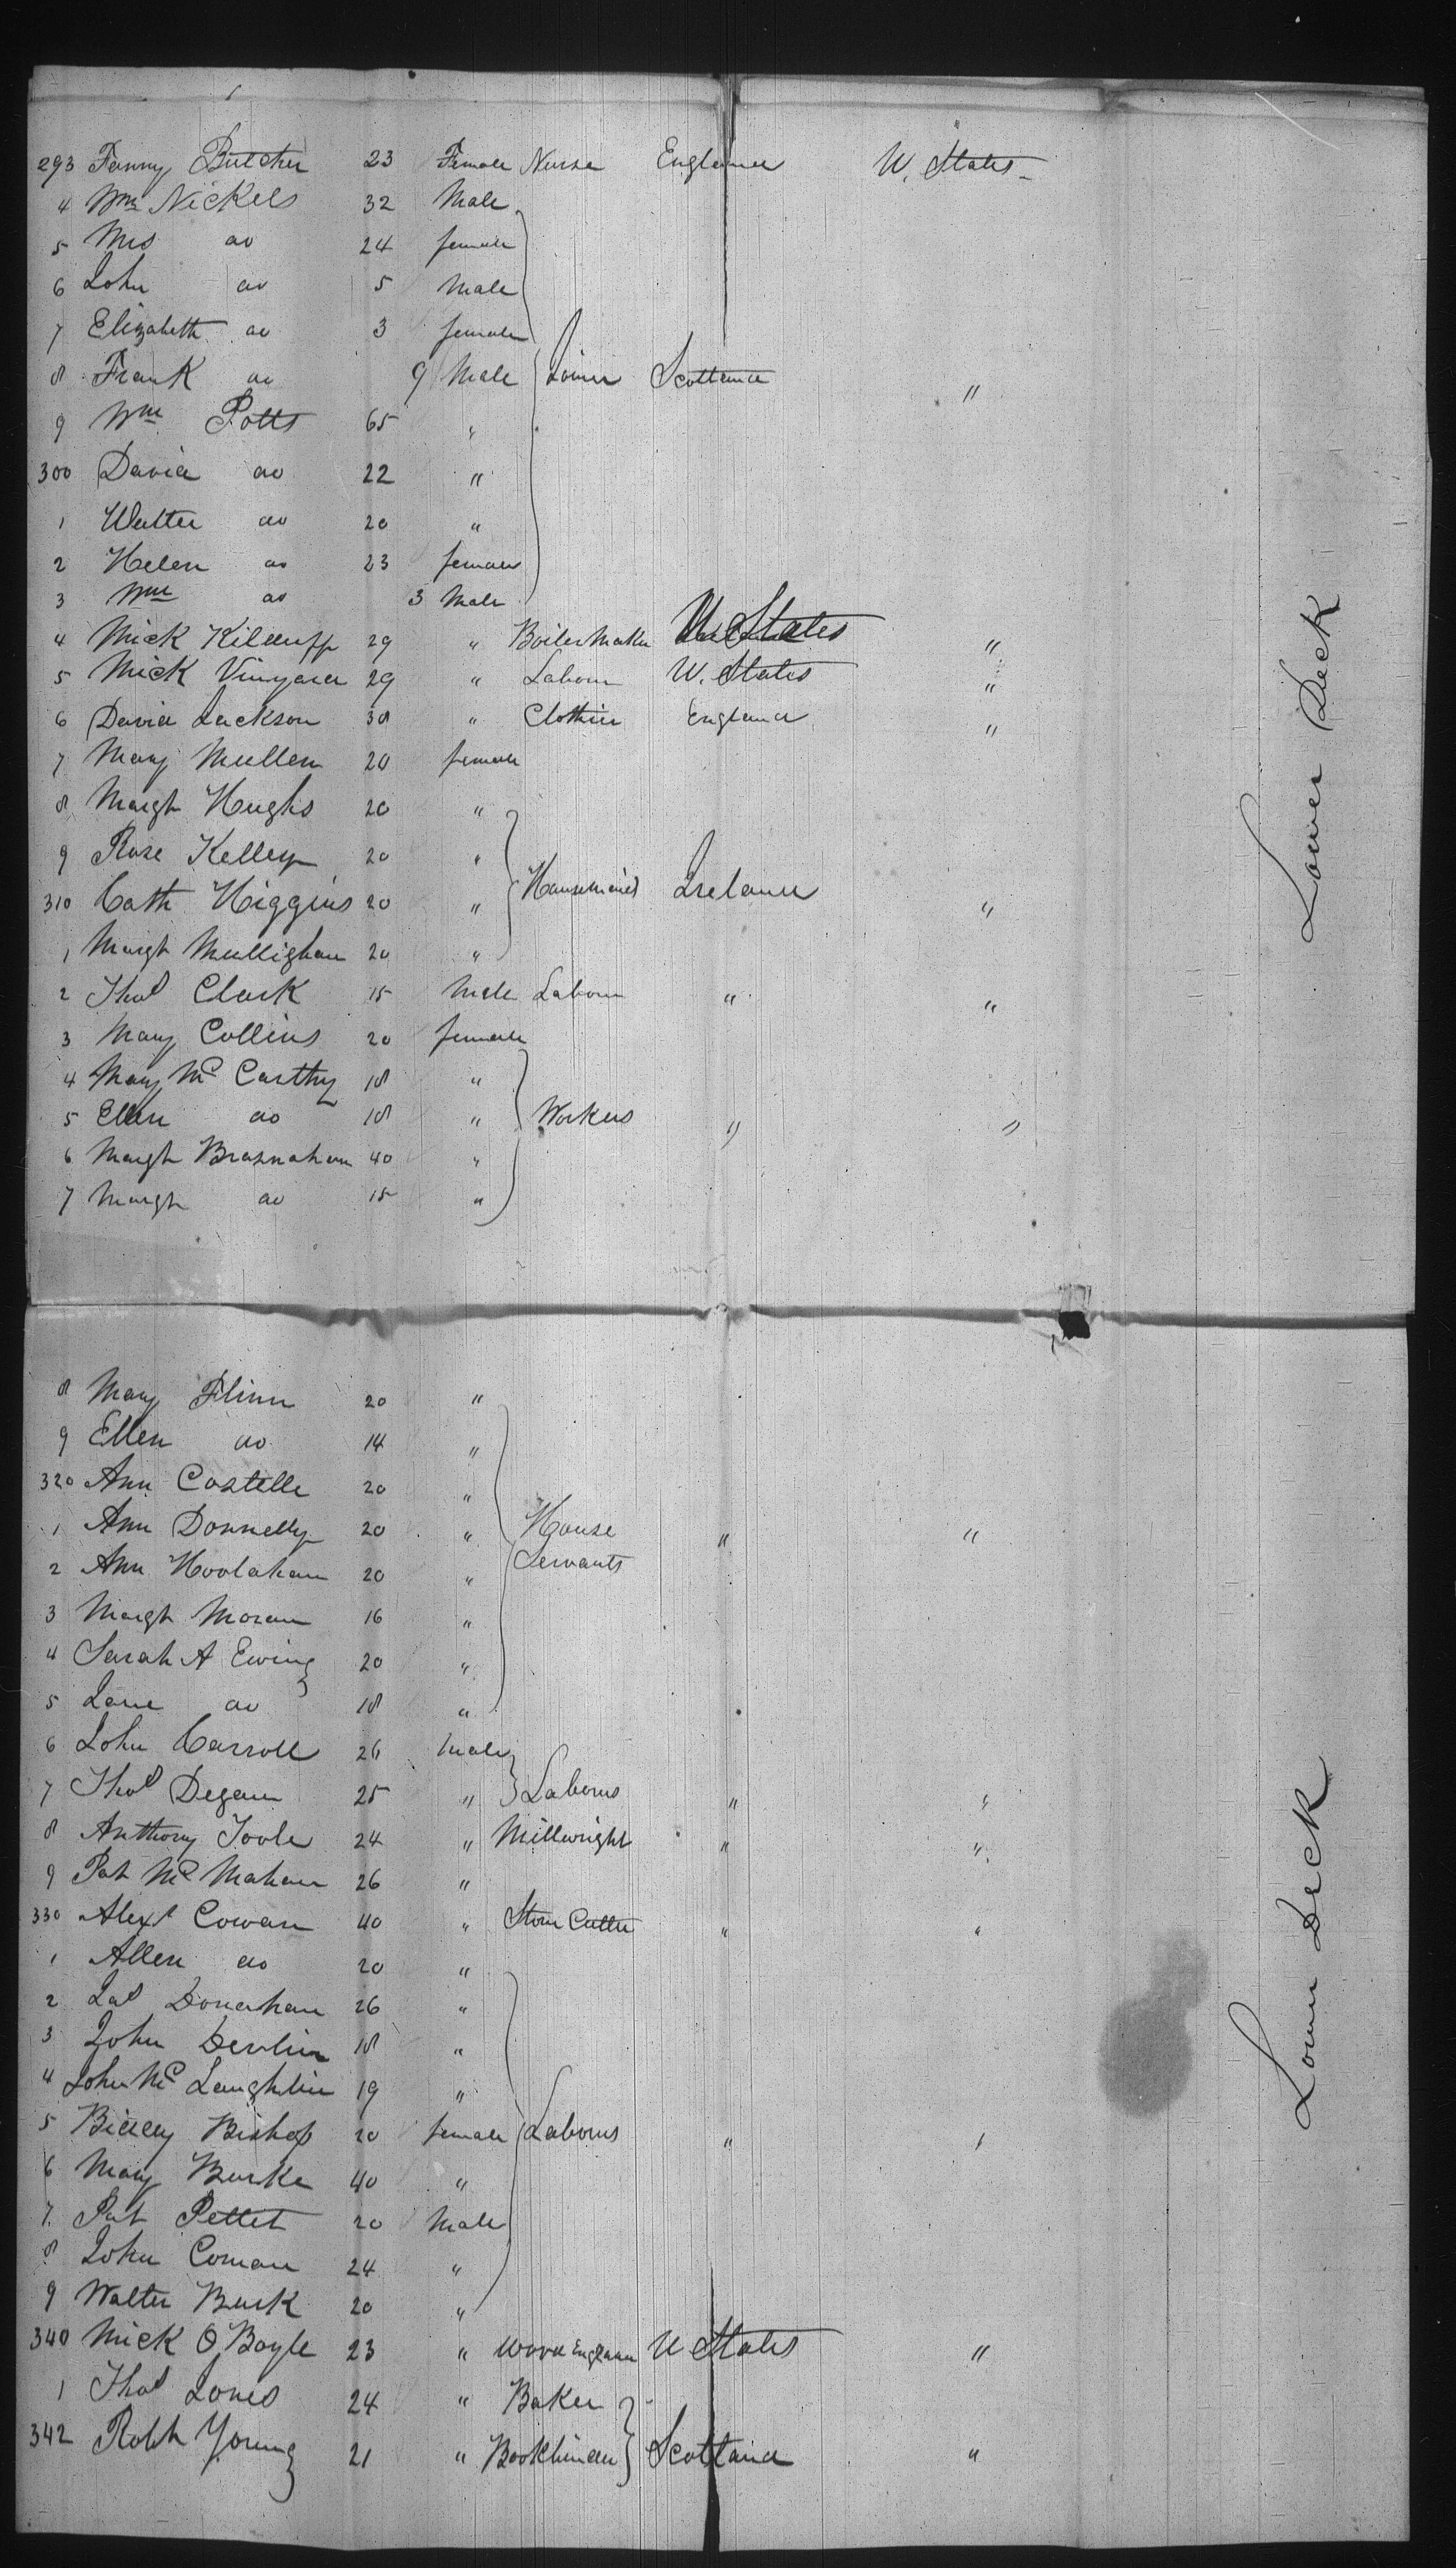 293 Fanny Butcher 23 Female Nurse England U. States
4 Wm Nickels 32 Male
5 Mrs do 24 female
6 John do 5 Male
7 Elizabeth do 3 female
8 Frank do 9 Male Joiner Scotland "
9 Wm Potts 65 "
300 David do 22 "
1 Walter do 20 "
2 Helen do 23 female
3 Wm do 3 Male
4 Mick Kilduff 29 " Boiler Maker U States "
5 Mick Vinyard 29 " Labour U. States "
6 David Jackson 38 " Clothier England "
7 Mary Mullen 20 female
8 Margt Hughs 20 "
9 Rose Kelley 20 "
310 Cath Higgins 20 " Housemaid Ireland "
1 Margt Mullighan 20 "
2 Thos Clark 15 Male Labour " "
3 Mary Collins 20 female
4 Mary Mc Carthy 18 "
5 Ellen do 18 " Workers " "
6 Margt Brasnaham 40 "
7 Margt do 15 "
Lower Deck
8 Mary Flinn 20 "
9 Ellen do 14 "
320 Ann Costelle 20 "
1 Ann Donnelly 20 " House " "
Servants
2 Ann Hoolahan 20 "
3 Margt Moran 16 "
4 Sarah A Ewing 20 "
5 Jane do 18 "
6 John Carroll 26 Male
7 Thos Degan 25 " Laborers " "
8 Anthony Toole 24 " Millwright " "
9 Pat Mc Mahan 26 "
330 Alexr Cowan 40 " Stone Cutter " "
1 Allen do 20 "
2 Jas Donerhan 26 "
3 John Devlin 18 "
4 John Mc Laughlin 19 "
5 Biddy Bishop 20 female Laborers " "
6 Mary Burke 40 "
7 Pat Pettet 20 Male
8 John Coman 24 "
9 Walter Burk 20 "
340 Mick O Boyle 23 " Wood U States "
1 Thos Jones 24 " Baker
342 Robt Young 21 " Bookbinder Scotland "
Lower Deck